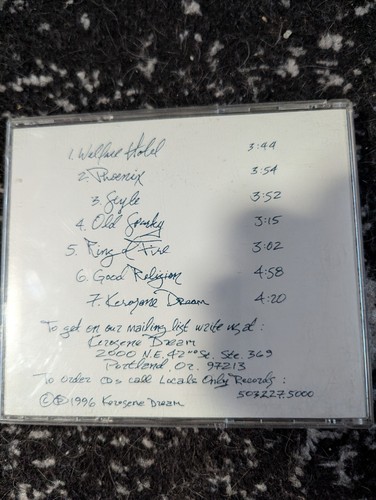 1. Welfare Hotel 3:44
2. Phoenix 3:54
3. Style 3:52
4. Old Spunky 3:15
5. Ring of Fire 3:02
6. Good Religion 4:58
7. Kerosene Dream 4:20
To get on our mailing list write us at:
Kerosene Dream
2000 N.E. 42nd St. Ste. 369
Portland Or. 97213
To order CDs call Locals Only Records:
503.227.5000
©℗1996 Kerosene Dream